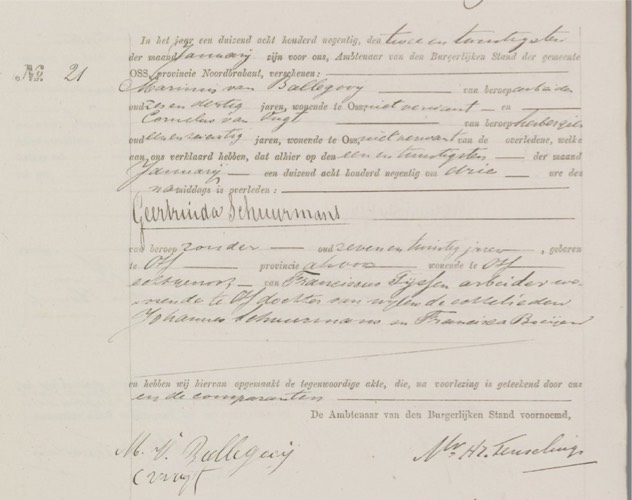 In het jaar een duizend acht honderd negentig, den twee en twintigsten
der maand January zijn voor ons, Ambtenaar van den Burgerlijken Stand der gemeente
No. 21
OSS, provincie Noordbrabant, verschenen:
Marinus van Ballegooij van beroep arbeider
oud zes en dertig jaren, wonende te Oss, niet verwant en
Cornelus van Vugt van beroep herbergier
oud een en zestig jaren, wonende te Oss, niet verwant van de overledene, welke
aan ons verklaard hebben, dat alhier op den een en twintigsten der maand
January een duizend acht honderd negentig om drie ure des
namiddags is overleden:
Geertruida Schuurmans
van beroep zonder oud zeven en twintig jaren, geboren
te Oss provincie alvoor wonende te Oss
echtgenoot van Franciscus arbeider wo-
nende te Oss dochter van wijlen de echtelieden
Johannes Schuurmans en Francisca
en hebben wij hiervan opgemaakt de tegenwoordige akte, die, na voorlezing is geteekend door ons
en de comparanten
De Ambtenaar van den Burgerlijken Stand voornoemd,
M. V. Ballegoij
C v vugt